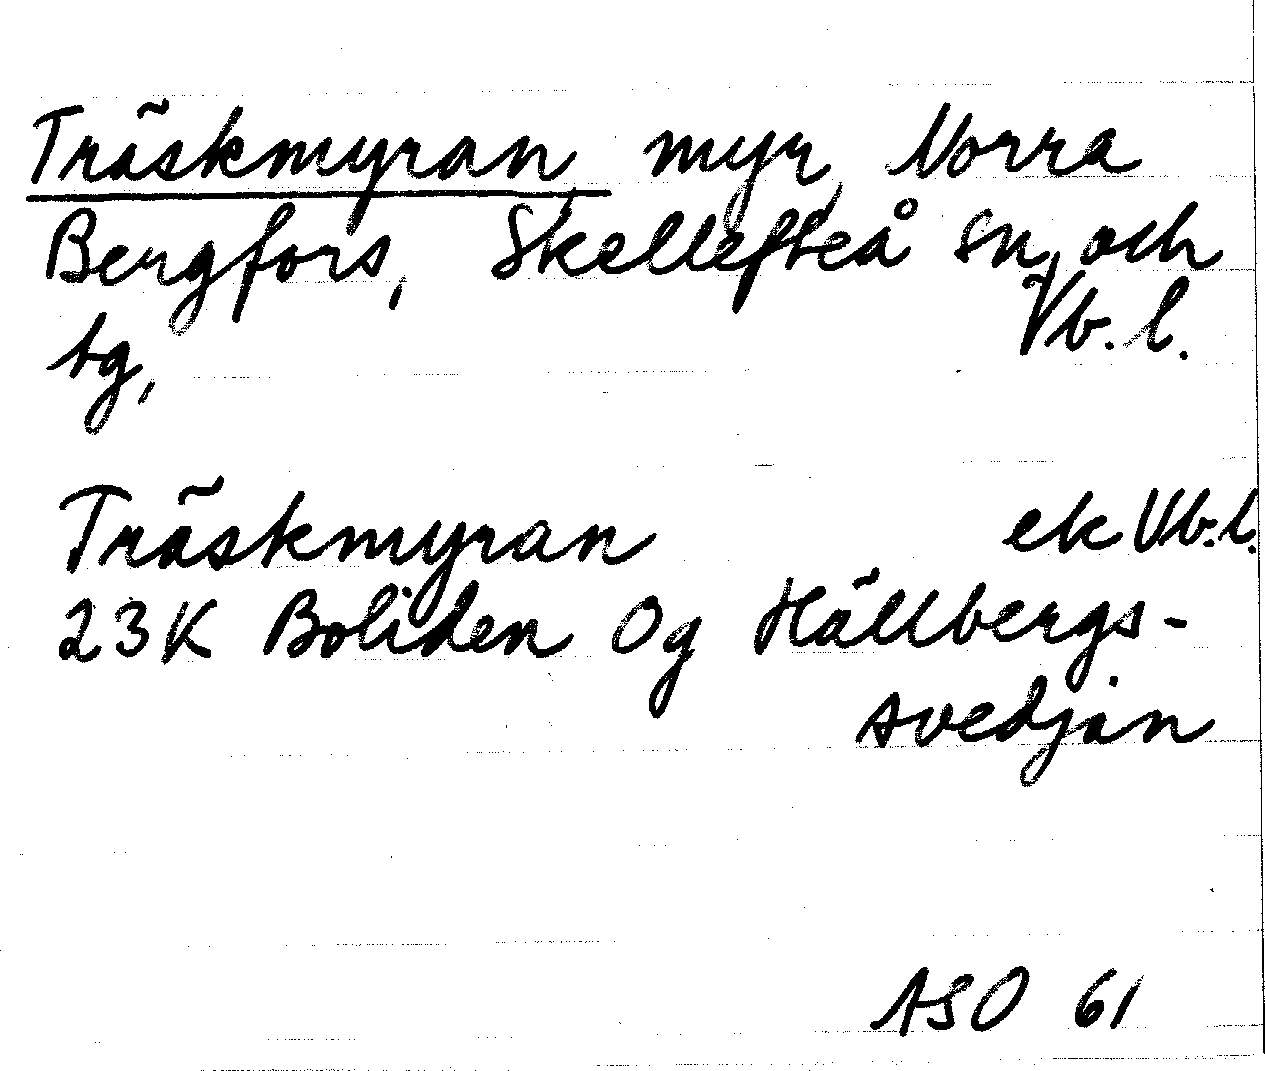 Träskmyran, myr, Norra
Bergfors, Skellefteå sn och
tg, Vb.l.
Träskmyran ek Vb.l.
23K Boliden 0g Hällbergs-
svedjan
ASO 61